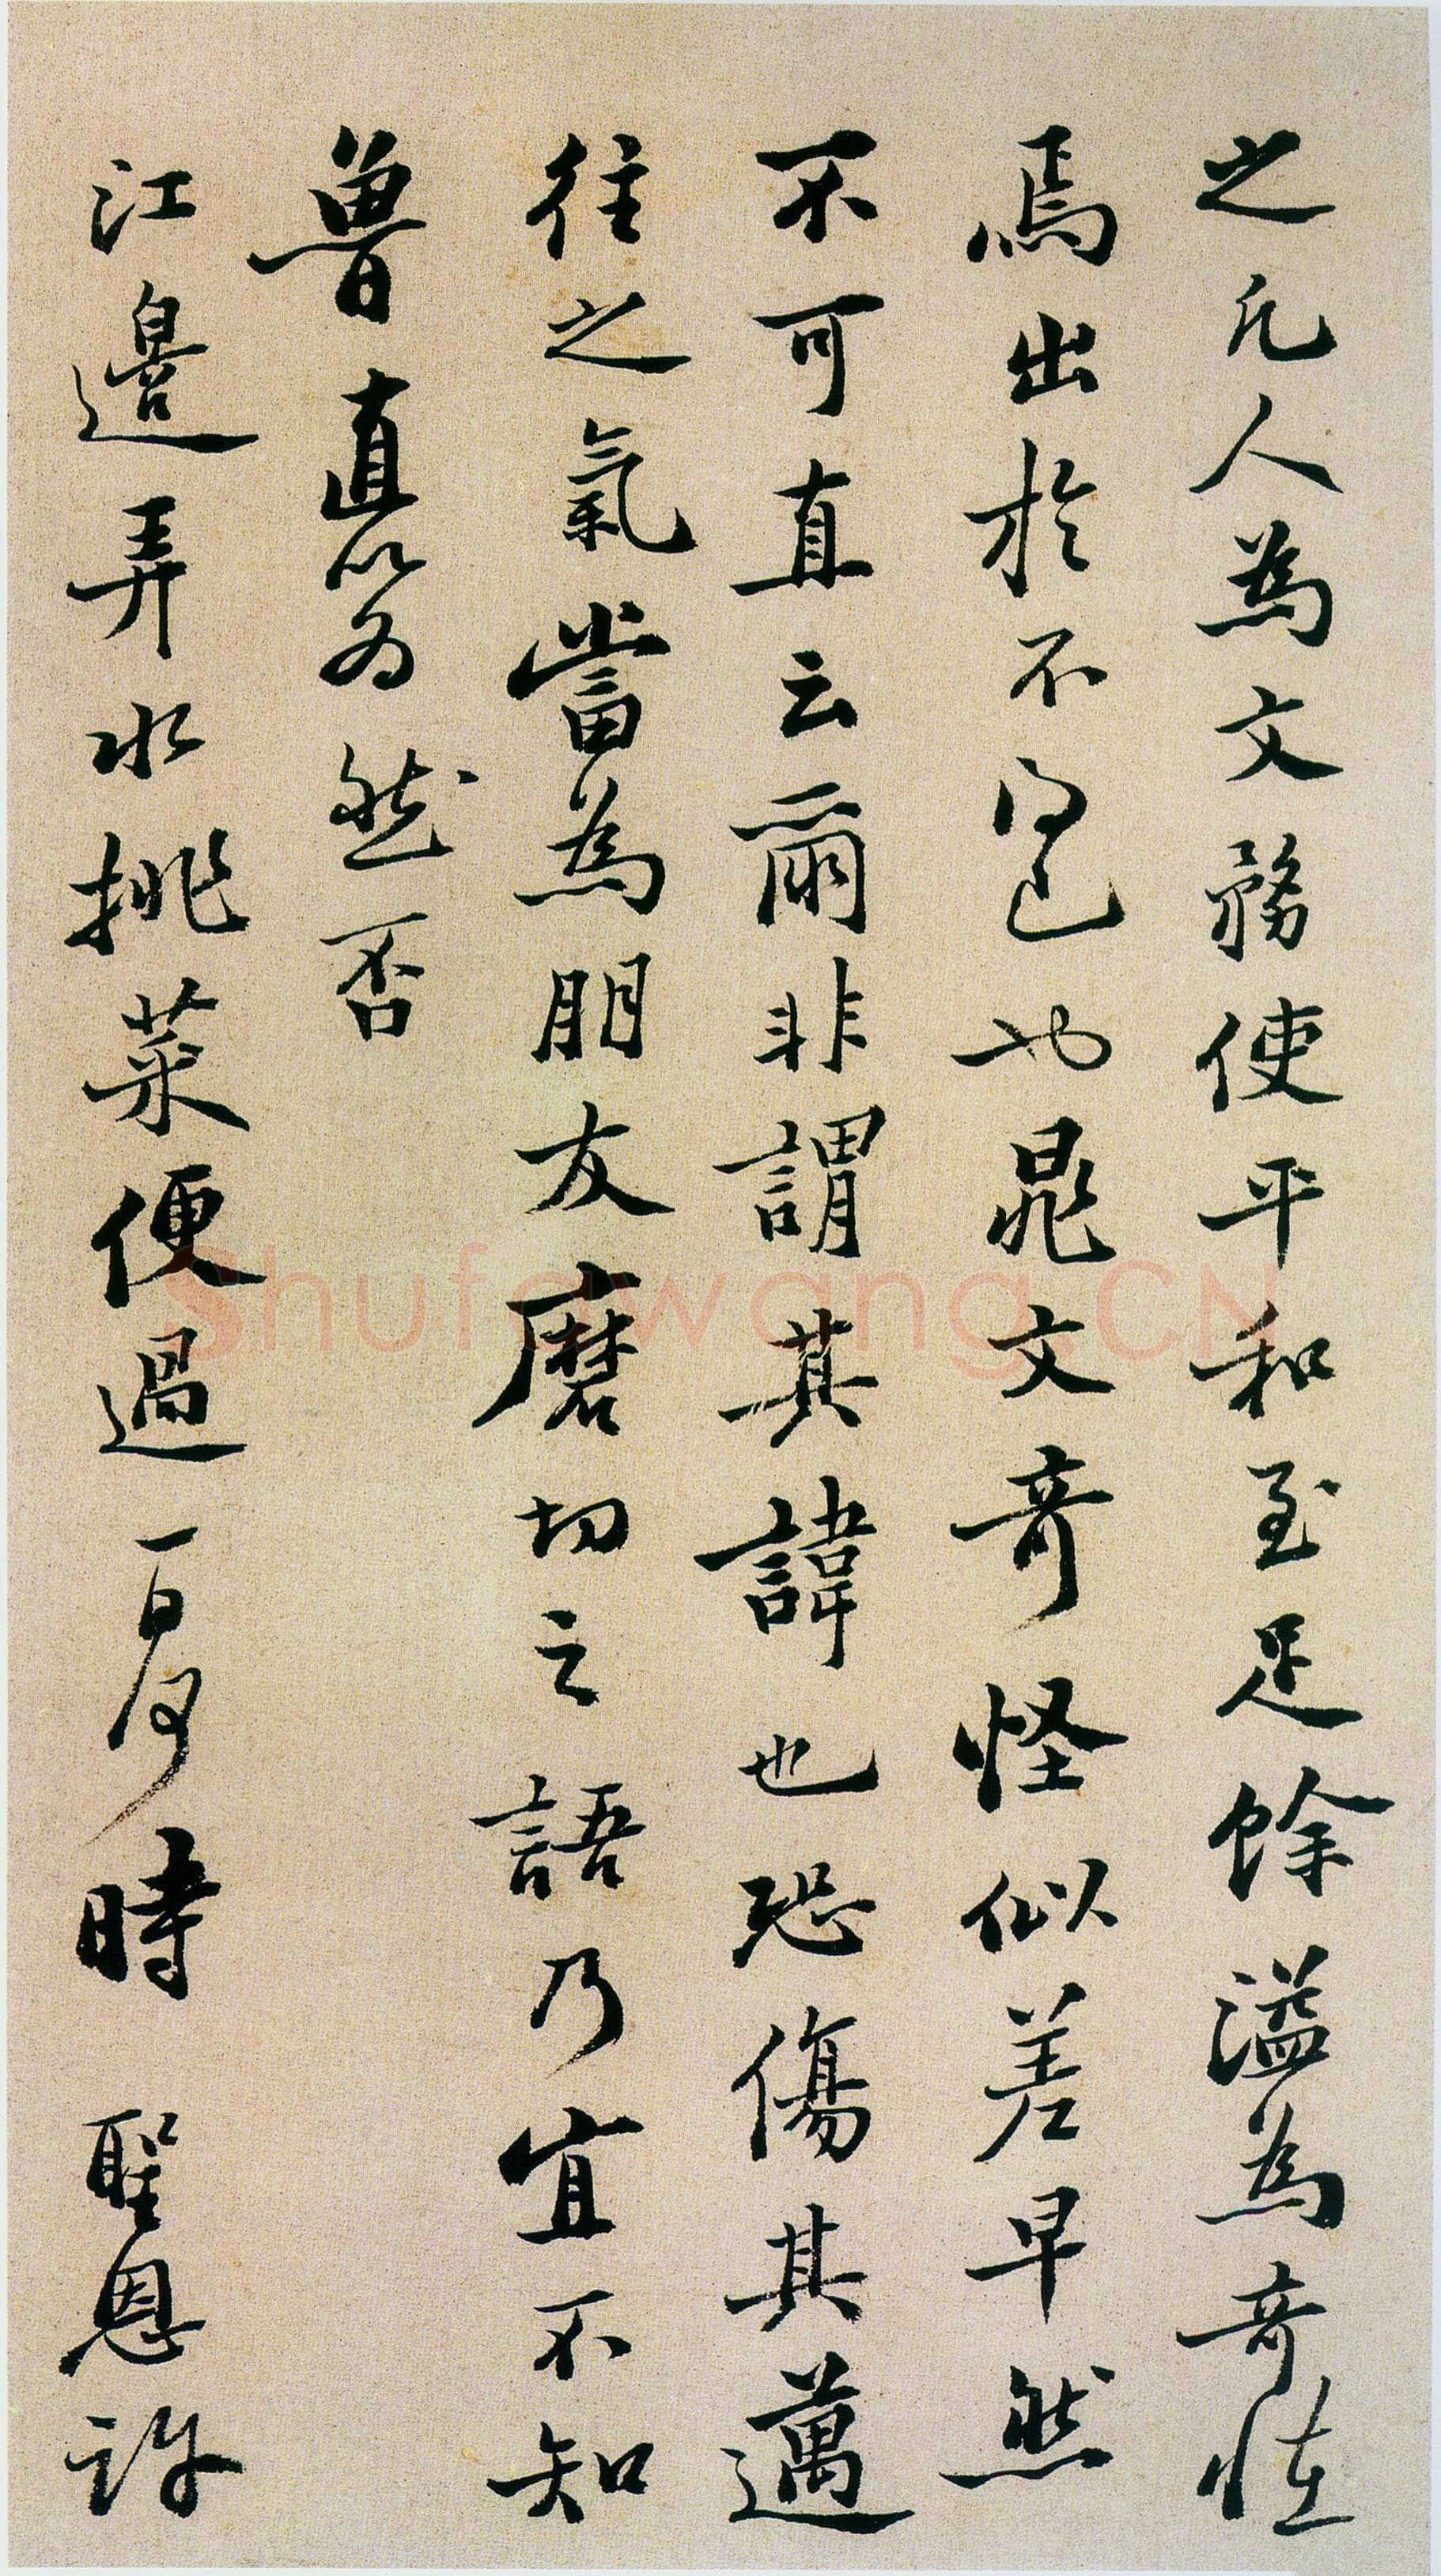 之凡人為文務使平和至足餘溢為奇怪
焉出於不得已也晁文奇怪似差早然
不可直云爾非謂其諱也恐傷其邁
往之氣當為朋友磨切之語乃宜不知
魯直以為然否
江邊弄水挑菜便過一日時
聖恩許
Shufawang.CN